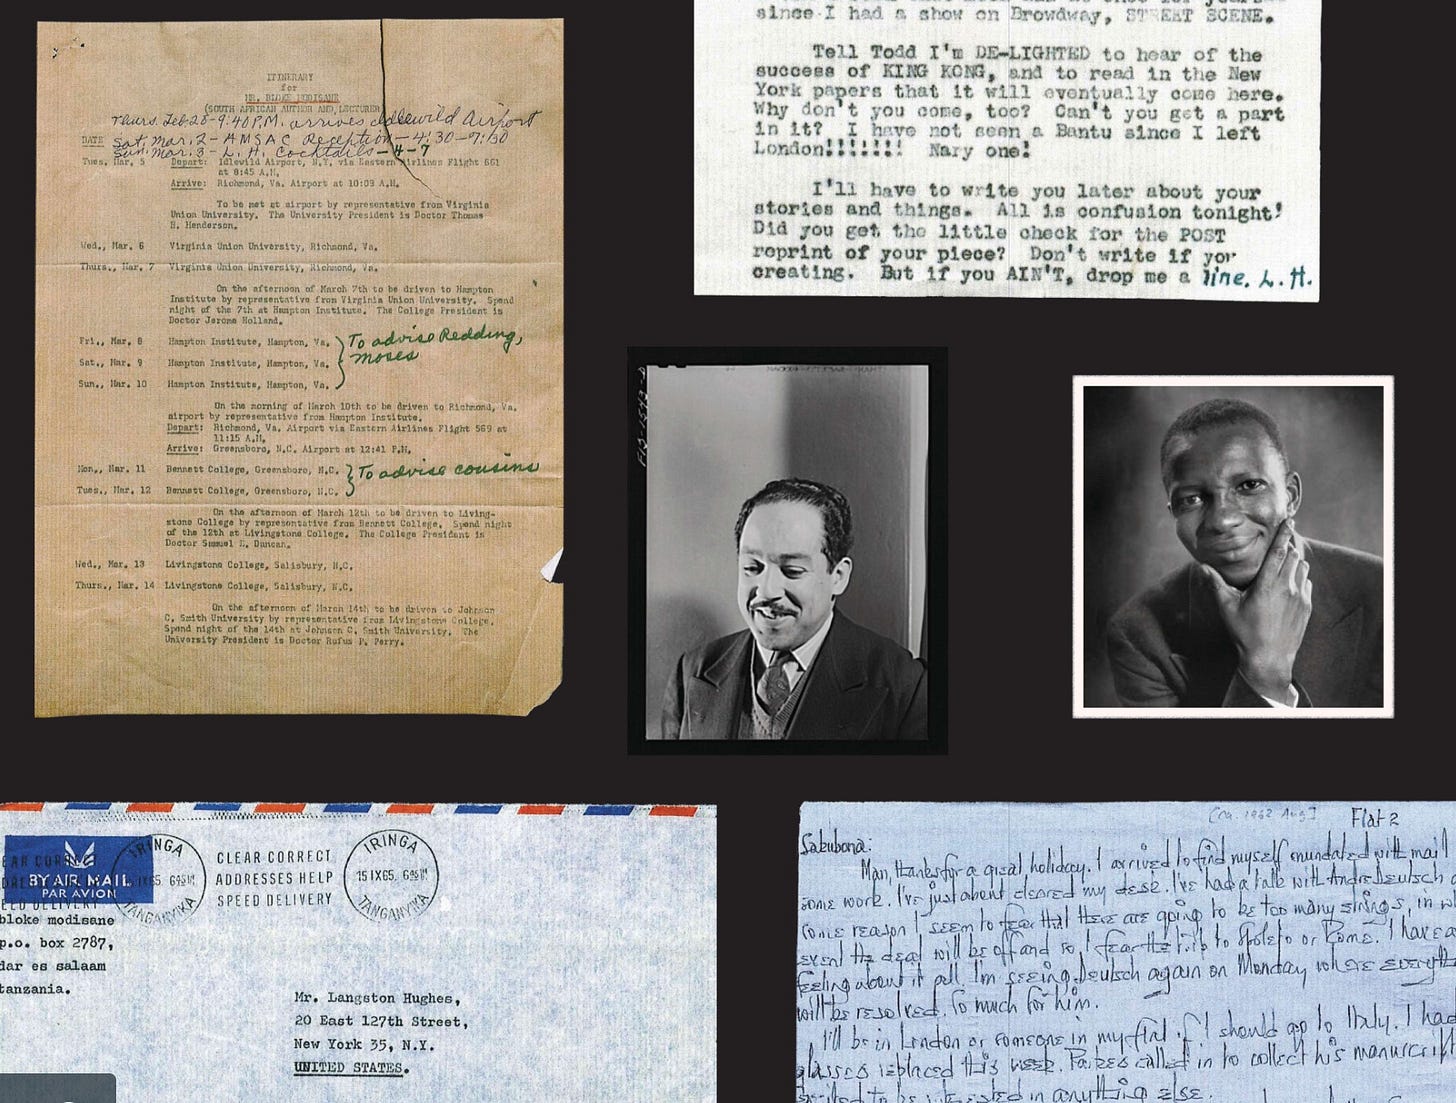 ITINERARY
for
MR. BLOKE MODISANE
(SOUTH AFRICAN AUTHOR AND LECTURER)
Thurs. Feb. 28-9:40 P.M. arrives Idlewild Airport
DATE
Sat. Mar. 2 - AMSAC Reception - 4:30-7:30
Sun. Mar. 3 - L. H. Cocktails - 4-7
Tues. Mar. 5 Depart: Idlewild Airport, N.Y. via Eastern Airlines Flight 661
at 8:45 A.M.
Arrive: Richmond, Va. Airport at 10:09 A.M.
To be met at airport by representative from Virginia
Union University. The University President is Doctor Thomas
H. Henderson.
Wed., Mar. 6 Virginia Union University, Richmond, Va.
Thurs., Mar. 7 Virginia Union University, Richmond, Va.
On the afternoon of March 7th to be driven to Hampton
Institute by representative from Virginia Union University. Spend
night of the 7th at Hampton Institute. The College President is
Doctor Jerome Holland.
Fri., Mar. 8 Hampton Institute, Hampton, Va.
To advise Redding,
Moses
Sat., Mar. 9 Hampton Institute, Hampton, Va.
Sun., Mar. 10 Hampton Institute, Hampton, Va.
On the morning of March 10th to be driven to Richmond, Va.
airport by representative from Hampton Institute.
Depart: Richmond, Va. Airport via Eastern Airlines Flight 569 at
11:15 A.M.
Arrive: Greensboro, N.C. Airport at 12:41 P.M.
Mon., Mar. 11 Bennett College, Greensboro, N.C.
To advise cousins
Tues., Mar. 12 Bennett College, Greensboro, N.C.
On the afternoon of March 12th to be driven to Living-
stone College by representative from Bennett College. Spend night
of the 12th at Livingstone College. The College President is
Doctor Samuel E. Duncan.
Wed., Mar. 13 Livingstone College, Salisbury, N.C.
Thurs., Mar. 14 Livingstone College, Salisbury, N.C.
On the afternoon of March 14th to be driven to Johnson
C. Smith University by representative from Livingstone College.
Spend night of the 14th at Johnson C. Smith University. The
University President is Doctor Rufus P. Perry.
since I had a show on Browdway, STREET SCENE.
Tell Todd I'm DE-LIGHTED to hear of the
success of KING KONG, and to read in the New
York papers that it will eventually come here.
Why don't you come, too? Can't you get a part
in it? I have not seen a Bantu since I left
London!!!!!!! Nary one!
I'll have to write you later about your
stories and things. All is confusion tonight!
Did you get the little check for the POST
reprint of your piece? Don't write if yor
creating. But if you AIN'T, drop me a line. L. H.
BY AIR MAIL
PAR AVION
IRINGA
TANGANYIKA
CLEAR CORRECT
ADDRESSES HELP
SPEED DELIVERY
IRINGA
15 IX65
TANGANYIKA
bloke modisane
p.o. box 2787,
dar es salaam
tanzania.
Mr. Langston Hughes,
20 East 127th Street,
New York 35, N.Y.
UNITED STATES.
[ca. 1962 Aug] Flat 2
Sakubona:
Man, thanks for a great holiday. I arrived to find myself inundated with mail
some work. I've just about cleared my desk. I've had a talk with Andre Deutsch
some reason I seem to fear that there are going to be too many strings, in
event the deal will be off and so I fear the trip to Spoleto or Rome. I have a
feeling about it all. I'm seeing Deutsch again on Monday where
will be resolved. So much for him.
I'll be in London or someone in my flat if I should go to Italy. I had
glasses replaced this week. called in to collect his manuscript
to be interested in anything else.